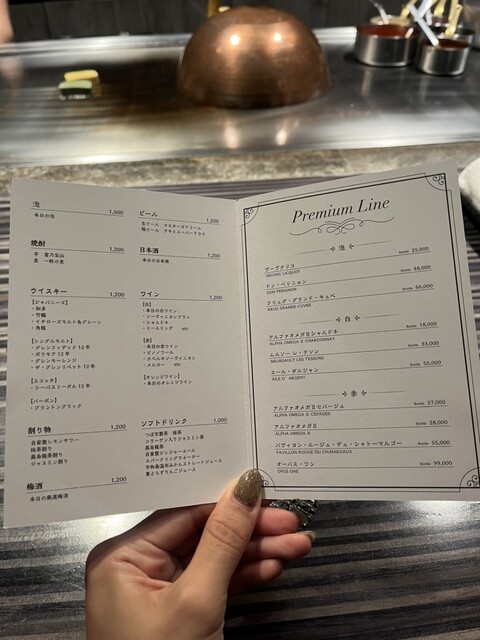 泡 1,500
本日の泡
焼酎 1,200
芋 富乃宝山
麦 一粒の麦
ウイスキー 1,200
【ジャパニーズ】
・知多
・竹鶴
・イチローズモルト&グレーン
・角瓶
【シングルモルト】
・グレンフィディック 12 年
・ボウモア 12 年
・グレンモーレンジ
・ザ・グレンリベット 12 年
【スコッチ】
・シーバスリーガル 12 年
【バーボン】
・ブラントンブラック
割り物 1,200
自家製レモンサワー
抹茶割り
黒烏龍茶割り
ジャスミン割り
梅酒 1,200
本日の厳選梅酒
ビール 1,200
生ビール マスターズドリーム
瓶ビール アサヒスーパードライ
日本酒 1,200
本日の日本酒
ワイン 1,200
【白】
・本日の白ワイン
・ソーヴィニヨンブラン
・シャルドネ
・リースリング etc
【赤】
・本日の赤ワイン
・ピノノワール
・カベルネソーヴィニヨン
・メルロー etc
【オレンジワイン】
・本日のオレンジワイン
ソフトドリンク 1,000
つぼ市製茶 抹茶
コラーゲン入りジャスミン茶
黒烏龍茶
自家製ジンジャーエール
スパークリングウォーター
宇和島温州みかんストレートジュース
葉とらずりんごジュース
Premium Line
泡
ヴーヴクリコ Bottle 25,000
VEUVE CLICQUOT
ドン・ペリニヨン Bottle 48,000
DOM PERIGNON
クリュグ・グランド・キュベ Bottle 66,000
KRUG GRANDE CUVEE
白
アルファオメガⅡシャルドネ Bottle 18,000
ALPHA OMEGA Ⅱ CHARDONNAY
ムルソー レ・テソン Bottle 33,000
MEURSAULT LES TESSONS
エール・ダルジャン Bottle 55,000
AILE D' ARGENT
赤
アルファオメガⅡセパージュ Bottle 27,000
ALPHA OMEGA Ⅱ CEPAGES
アルファオメガⅡ Bottle 28,000
ALPHA OMEGA Ⅱ
パヴィヨン・ルージュ・デュ・シャトーマルゴー Bottle 55,000
PAVILLON ROUGE DU CH.MARGAUX
オーパス・ワン Bottle 99,000
OPUS ONE